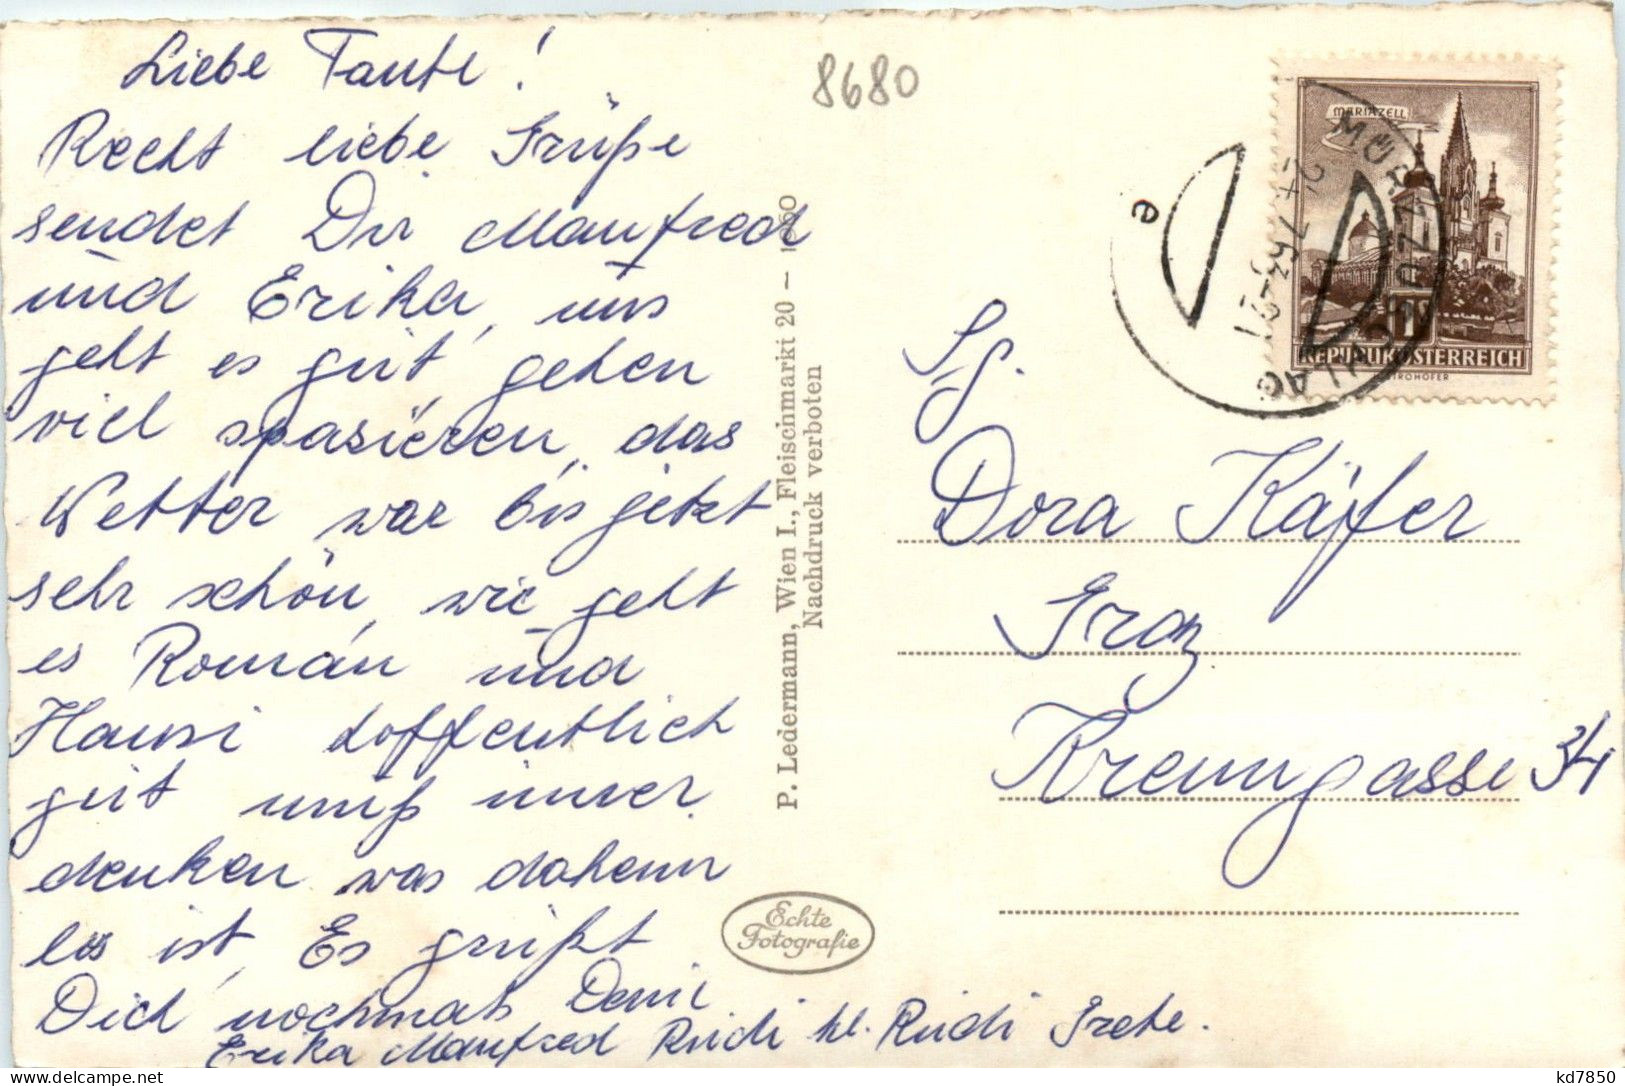 Liebe Tante!
Recht liebe Grüße
sendet Dir Manfred
und Erika, uns
geht es gut, gehen
viel spasieren, das
Wetter war bis jetzt
sehr schön, wie geht
es Roman und
Hansi hoffentlich
gut muß immer
denken was daheim
los ist, Es grüßt
Dich nochmals Deine
Erika Manfred Rudi kl. Rudi Grete.
8680
P. Ledermann, Wien I., Fleischmarkt 20 – 1960
Nachdruck verboten
Echte
Fotografie
MARIAZELL
1S
REPUBLIK ÖSTERREICH
STROHOFER
MÜRZZUSCHLAG
e
Dora Käfer
Graz
Kremgasse 34
kd7850